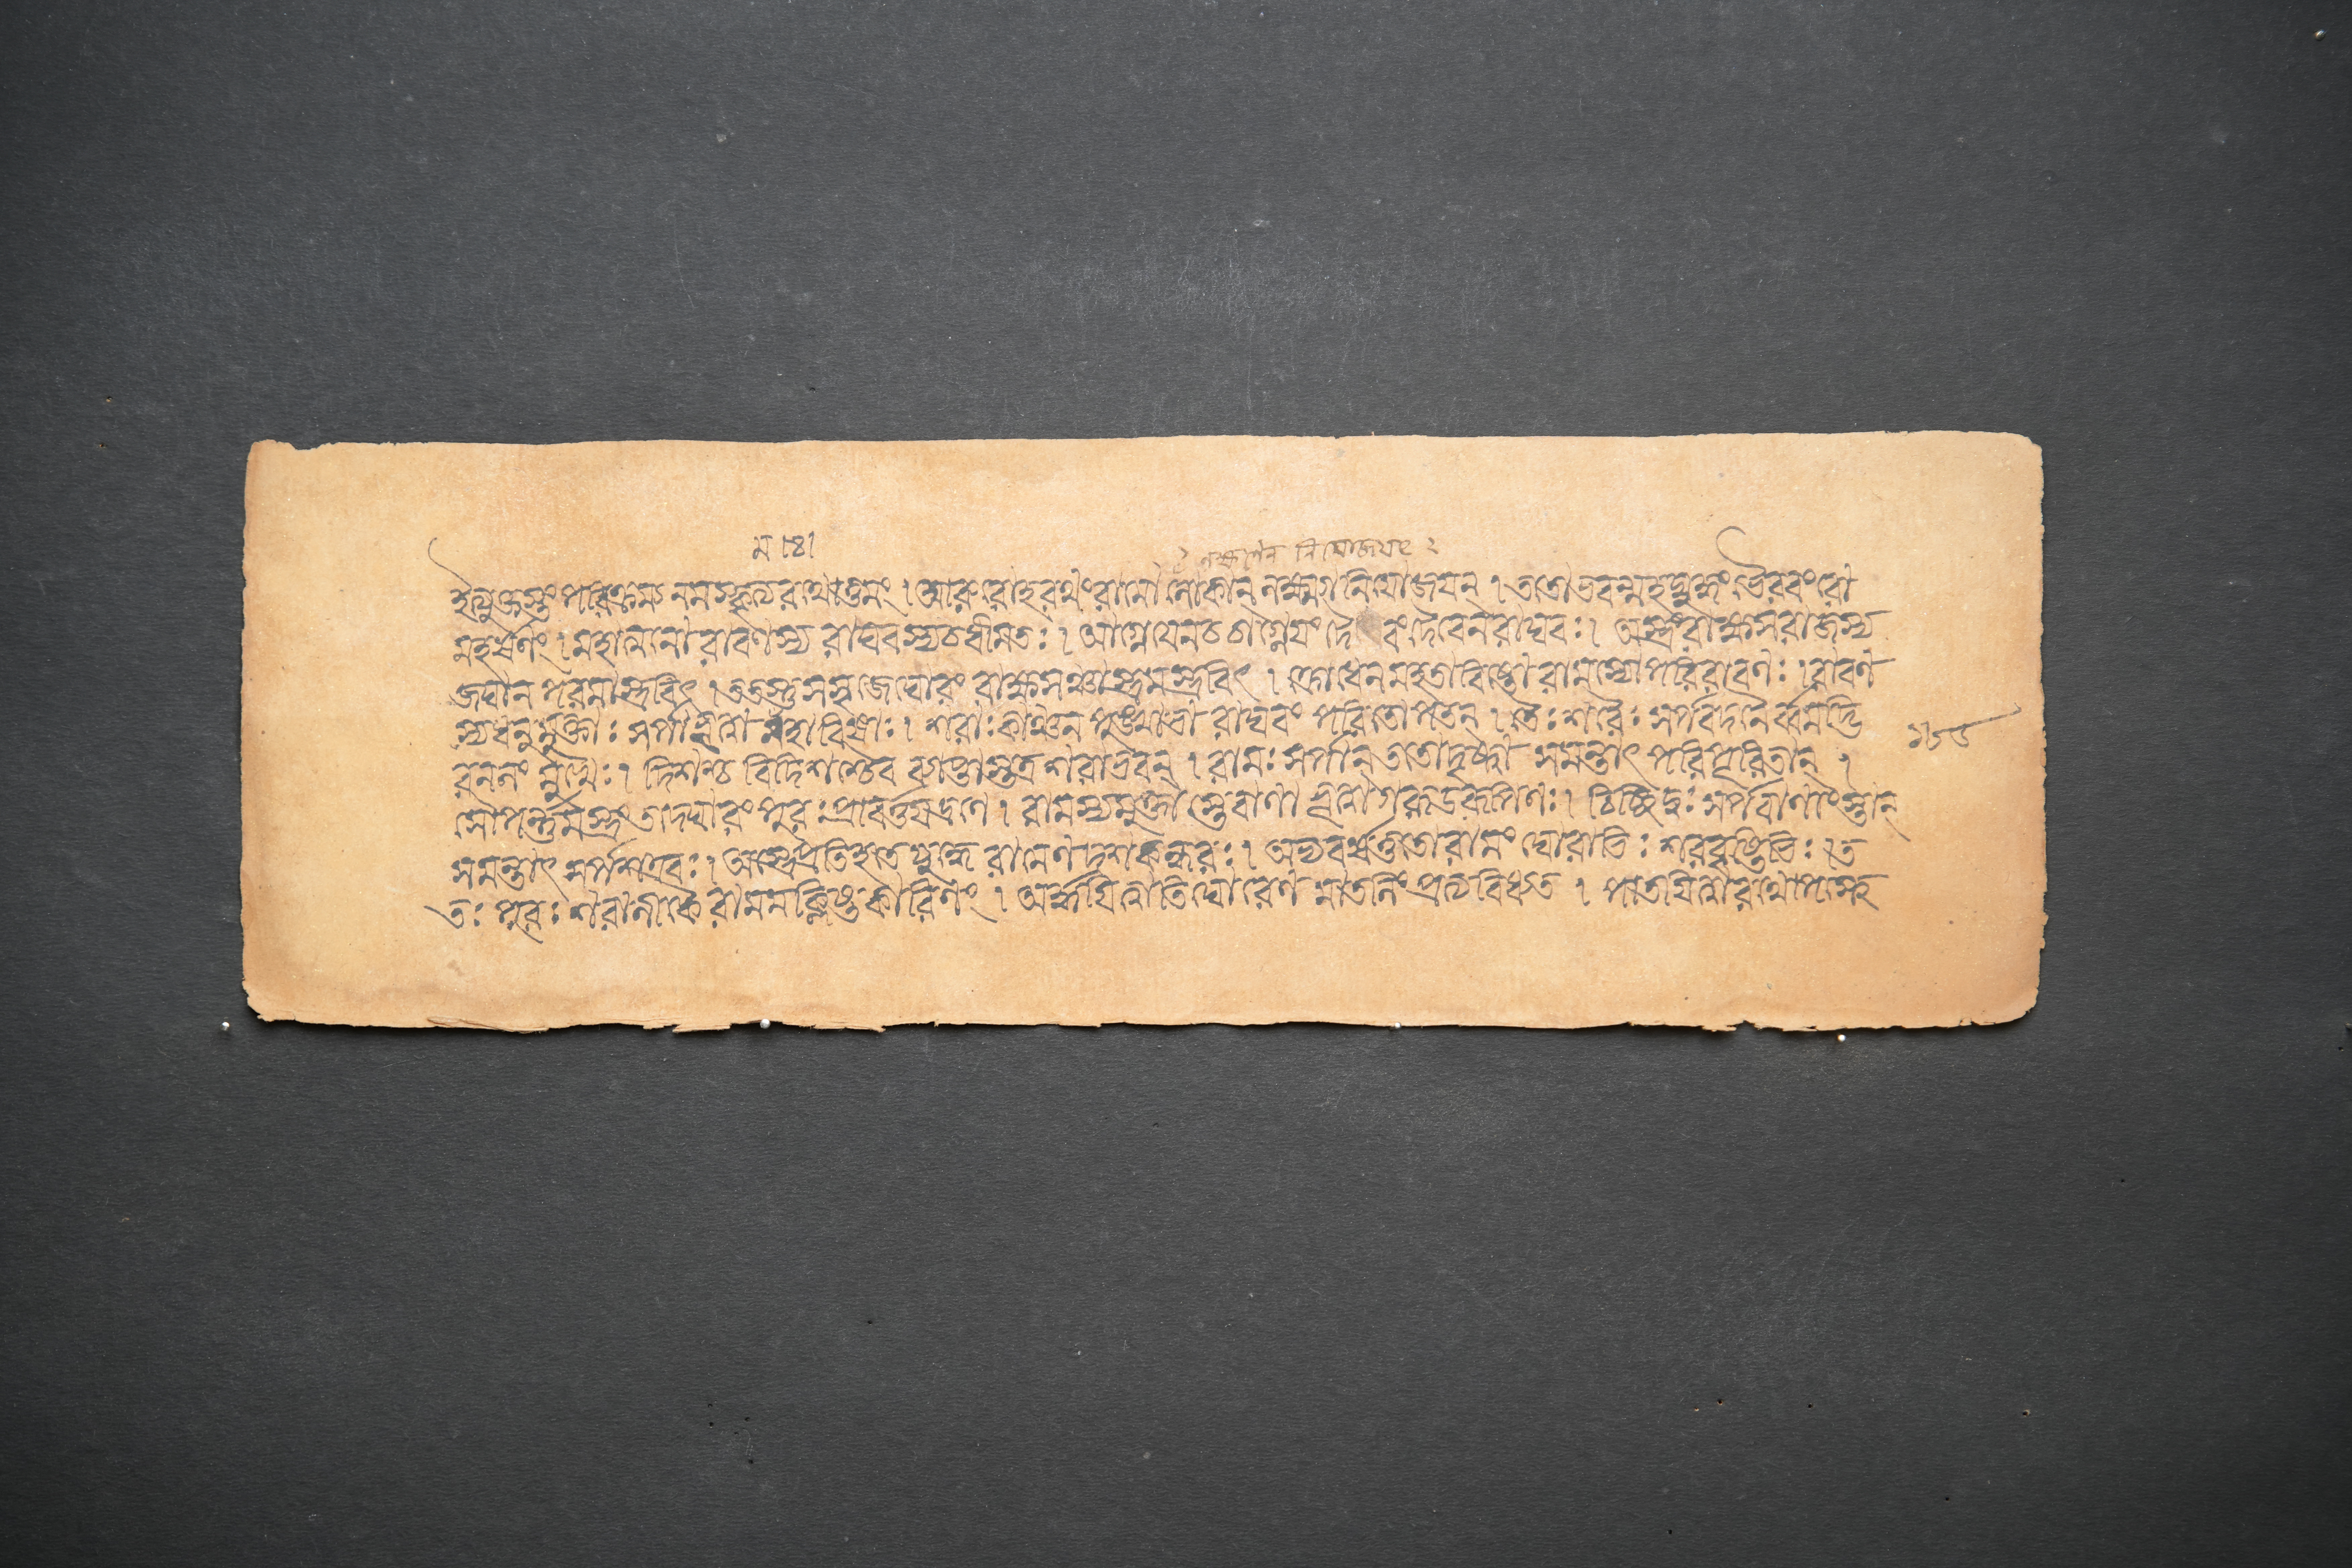 ম ।৪।
লক্ষ্মণেন নিযোজযৎ ২
ইত্যুক্তস্তং পরিক্রম্য নমস্কৃত্য রথোত্তমং । আরুরোহ রথং রামো লোকান্ লক্ষ্ম্যা নিযোজযন্ । ততোভবন্মহদ্যুদ্ধং ভৈরবং রো
মহর্ষণং । মহাত্মনো রাবণস্য রাঘবস্য চ ধীমতঃ । আগ্নেযেন চ আগ্নেযং দৈবং দৈবেন রাঘবঃ । অস্ত্রং রাক্ষসরাজস্য
জঘান পরমাস্ত্রবিৎ । ততস্তু সসৃজে ঘোরং রাক্ষসঞ্চাস্ত্রমস্ত্রবিৎ । ক্রোধেন মহতাবিষ্টো রামস্যোপরি রাবণঃ । রাবণ
স্য ধনুর্ম্মুক্তাঃ সর্পাভূত্বা মহাবিষাঃ । শরাঃ কাঞ্চনপুঙ্খাভা রাঘবং পরিতোপতন্ । তৈঃ শরৈঃ সর্পবদনৈর্ব্বমদ্ভি
রনলং মুখৈঃ । দিশশ্চ বিদিশশ্চৈব ব্যাপ্তাস্তত্র শরাভবন্ । রামঃ সর্পান্ ততো দৃষ্ট্বা সমন্তাৎ পরিপূরিতান্ ।
সৌপর্ন্নমস্ত্রং তদ্ঘোরং পুরঃ প্রাবর্ত্তযদ্রণে । রামস্য মুক্তাস্তে বাণা ভূত্বা গরুডরূপিণঃ । চিচ্ছিদুঃ সর্পবাণাংস্তান্
সমন্তাৎ সর্পশত্রবঃ । অস্ত্রে প্রতিহতে যুদ্ধে রামেণ দশকন্ধরঃ । অভ্যবর্ষত্ততো রামং ঘোরাভিঃ শরবৃষ্টিভিঃ । ত
তঃ পুনঃ শরানীকৈ রামমক্লিষ্টকারিণং । অর্দ্দযিত্বাতিঘোরেণ মাতলিং প্রত্যবিধ্যত । পাতযিত্বা রথোপস্থে
১৬৫